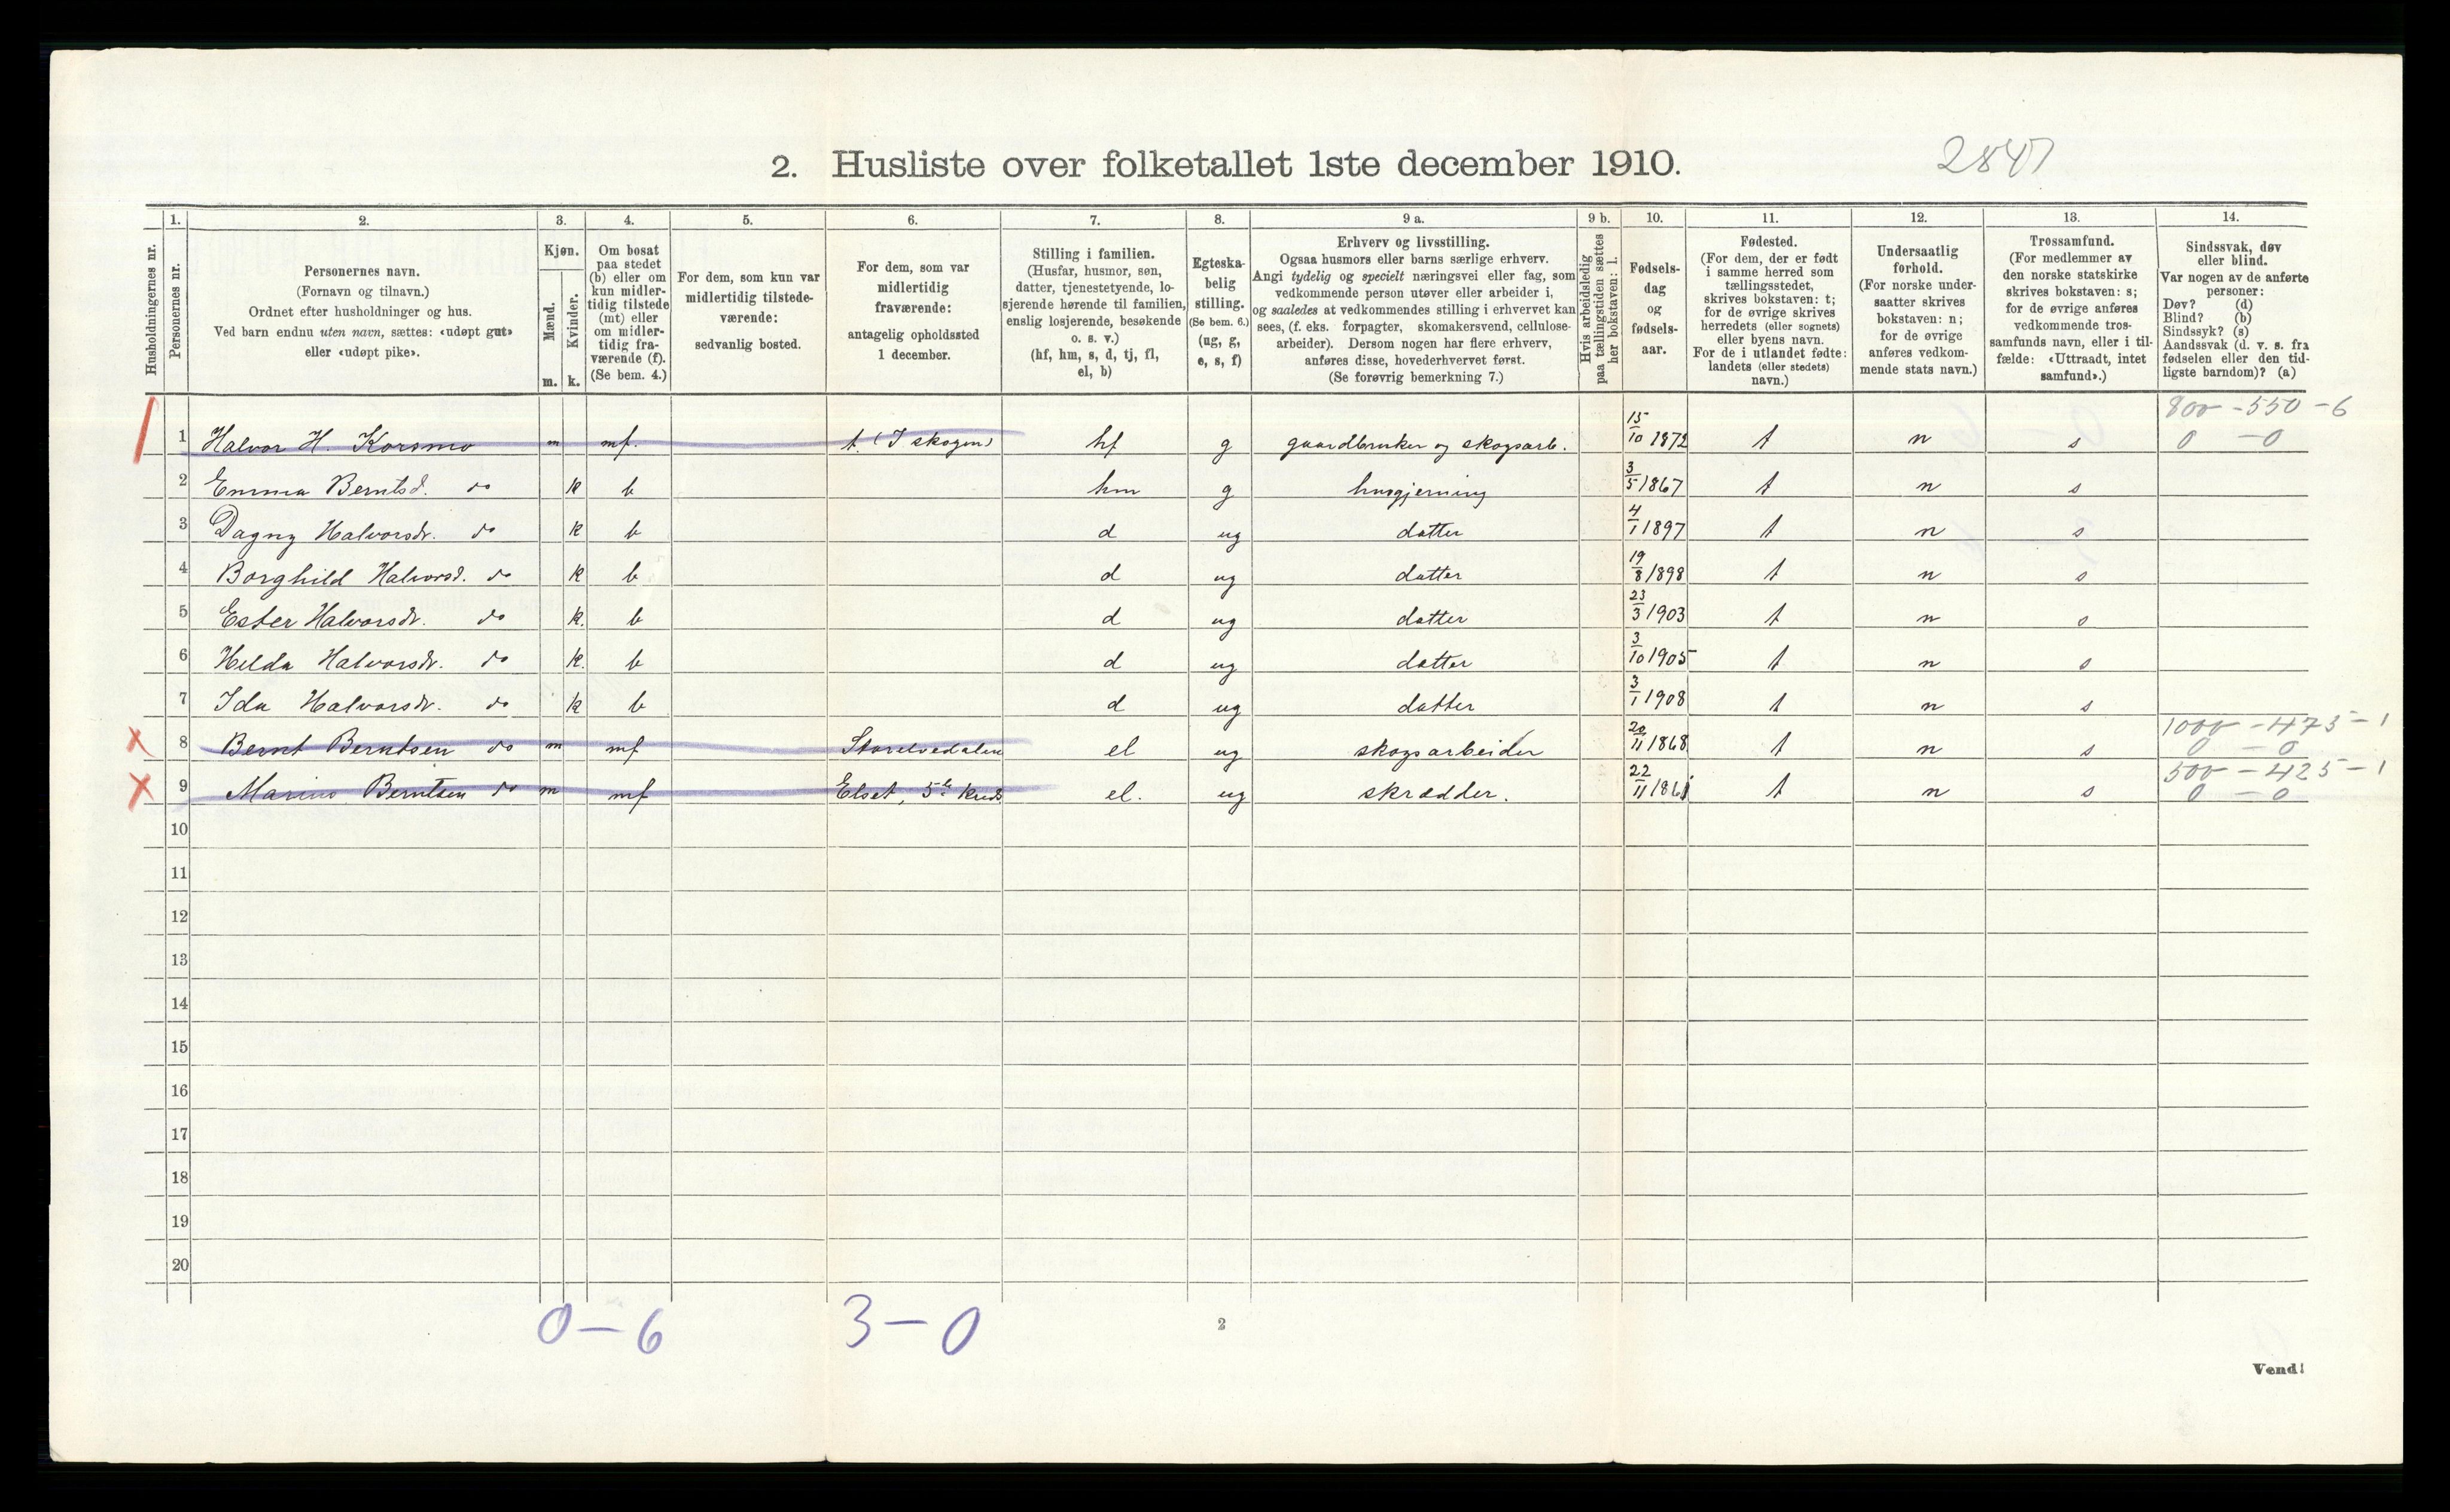 2. Husliste over folketallet 1ste december 1910.
2847
1. 2. 3. 4. 5. 6. 7. 8. 9 a. 9 b. 10. 11. 12. 13. 14.
Husholdningernes nr.
Personernes nr.
Personernes navn.
(Fornavn og tilnavn.)
Ordnet efter husholdninger og hus.
Ved barn endnu uten navn, sættes: «udøpt gut»
eller «udøpt pike».
Kjøn.
Mænd.
Kvinder.
m. k.
Om bosat
paa stedet
(b) eller om
kun midler-
tidig tilstede
(mt) eller
om midler-
tidig fra-
værende (f).
(Se bem. 4.)
For dem, som kun var
midlertidig tilstede-
værende:
sedvanlig bosted.
For dem, som var
midlertidig
fraværende:
antagelig opholdssted
1 december.
Stilling i familien.
(Husfar, husmor, søn,
datter, tjenestetyende, lo-
sjerende hørende til familien,
enslig losjerende, besøkende
o. s. v.)
(hf, hm, s, d, tj, fl,
el, b)
Egteska-
belig
stilling.
(Se bem. 6.)
(ug, g,
e, s, f)
Erhverv og livsstilling.
Ogsaa husmors eller barns særlige erhverv.
Angi tydelig og specielt næringsvei eller fag, som
vedkommende person utøver eller arbeider i,
og saaledes at vedkommendes stilling i erhvervet kan
sees, (f. eks. forpagter, skomakersvend, cellulose-
arbeider). Dersom nogen har flere erhverv,
anføres disse, hovederhvervet først.
(Se forøvrig bemerkning 7.)
Hvis arbeidsledig
paa tællingstiden sættes
her bokstaven: l.
Fødsels-
dag
og
fødsels-
aar.
Fødested.
(For dem, der er født
i samme herred som
tællingsstedet,
skrives bokstaven: t;
for de øvrige skrives
herredets (eller sognets)
eller byens navn.
For de i utlandet fødte:
landets (eller stedets)
navn.)
Undersaatlig
forhold.
(For norske under-
saatter skrives
bokstaven: n;
for de øvrige
anføres vedkom-
mende stats navn.)
Trossamfund.
(For medlemmer av
den norske statskirke
skrives bokstaven: s;
for de øvrige anføres
vedkommende tros-
samfunds navn, eller i til-
fælde: «Uttraadt, intet
samfund».)
Sindssvak, døv
eller blind.
Var nogen av de anførte
personer:
Døv? (d)
Blind? (b)
Sindssyk? (s)
Aandssvak (d. v. s. fra
fødselen eller den tid-
ligste barndom)? (a)
800 - 550 - 6
1 Halvor H. Korsmo m mf. t. (I skogen) hf g gaardbruker og skogsarb. 15/10 1872 t n s 0 - 0
2 Emma Berntsd. do k b hm g husgjerning 3/5 1867 t n s
3 Dagny Halvorsdr. do k b d ug datter 4/1 1897 t n s
4 Borghild Halvorsd. do k b d ug datter 19/8 1898 t n s
5 Ester Halvorsdr. do k. b d ug datter 23/3 1903 t n s
6 Helda Halvorsdr. do k. b d ug datter 3/10 1905 t n s
7 Ida Halvorsdr. do k b d ug datter 3/1 1908 t n s
1000 - 475 - 1
8 Bernt Berntsen do m mf Storelvedalen el ug skogsarbeider 20/11 1868 t n s 0 - 0
500 - 425 - 1
9 Marius Berntsen do m mf Elset, 5te kreds el. ug skrædder. 22/11 1861 t n s 0 - 0
10
11
12
13
14
15
16
17
18
19
20
0 - 6 3 - 0
2
Vend!